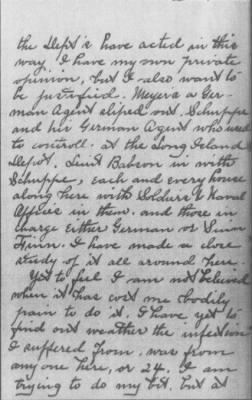 the Dept's have acted in this
way. I have my own private
opinion, but I also want to
be justified. Meyer's a Ger-
man Agent sliped out. Schuppe
and his German Agent who used
to controll. at the Long Island
Depot. Lieut Babson in with
Schuppe, each and every house
along here with Soldiers & Naval
Officers in them. and those in
charge Either German or Sinn
Feinn. I have made a close
study of it all around here.
Yet to feel I am not believed
when it has cost me bodily
pain to do it. I have yet to
find out weather the infection
I suffered from. was from
any one here, or 24. I am
trying to do my bit. but at